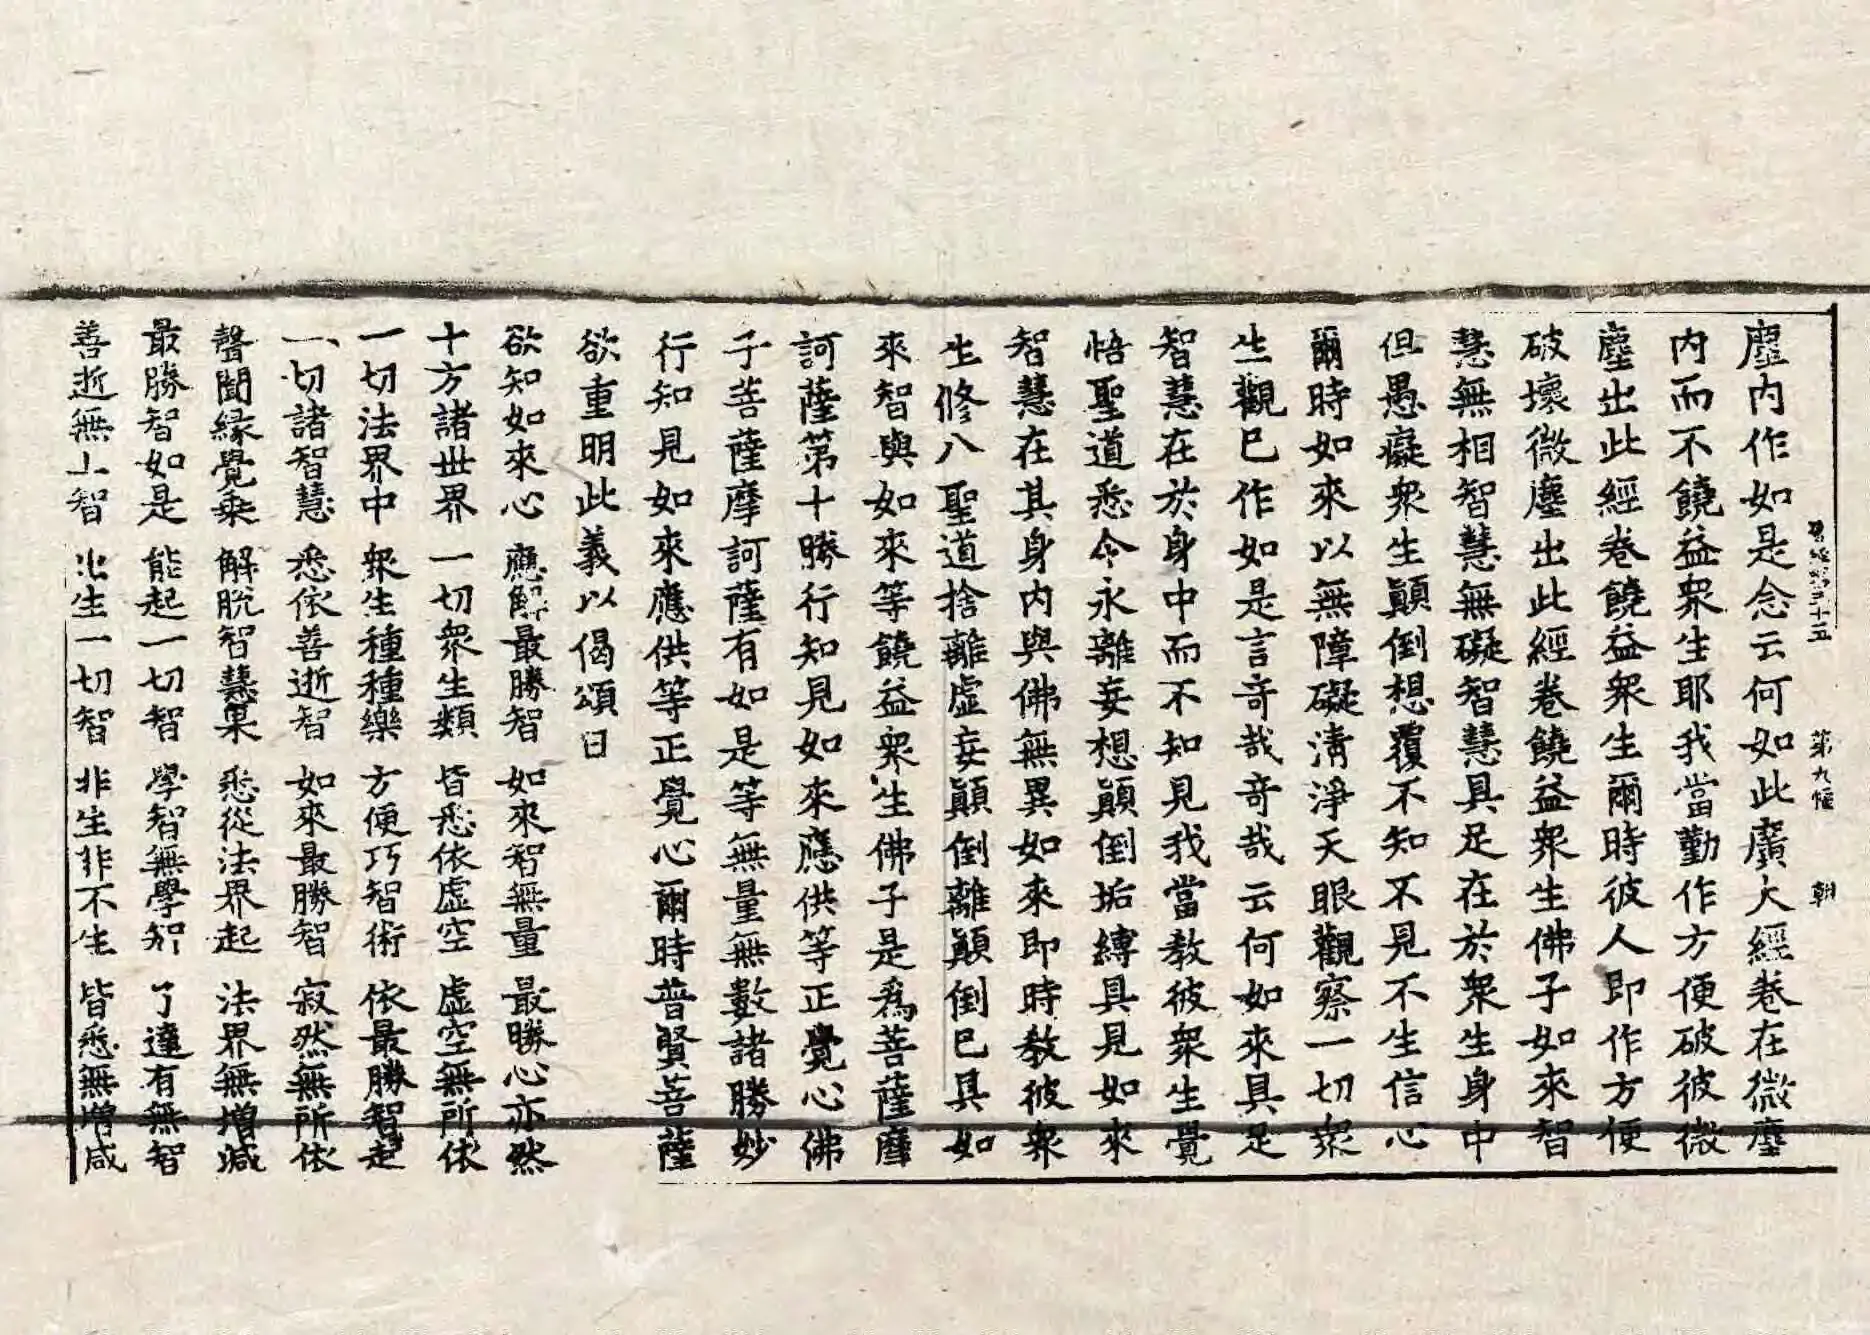 塵内作如是念云何如此廣大經卷在微塵
内而不饒益衆生耶我當勤作方便破彼微
塵出此經卷饒益衆生爾時彼人即作方便
破壞微塵出此經卷饒益衆生佛子如來智
慧無相智慧無礙智慧具足在於衆生身中
但愚癡衆生顚倒想覆不知不見不生信心
爾時如來以無障礙淸淨天眼觀察一切衆
生觀已作如是言奇哉奇哉云何如來具足
智慧在於身中而不知見我當敎彼衆生覺
悟聖道悉令永離妄想顚倒垢縛具見如來
智慧在其身内與佛無異如來即時敎彼衆
生修八聖道捨離虛妄顚倒離顚倒已具如
來智與如來等饒益衆生佛子是爲菩薩摩
訶薩第十勝行知見如來應供等正覺心佛
子菩薩摩訶薩有如是等無量無數諸勝妙
行知見如來應供等正覺心爾時普賢菩薩
欲重明此義以偈頌曰
欲知如來心 應解最勝智 如來智無量 最勝心亦然
十方諸世界 一切衆生類 皆悉依虛空 虛空無所依
一切法界中 衆生種種樂 方便巧智術 依最勝智起
一切諸智慧 悉依善逝智 如來最勝智 寂然無所依
聲聞緣覺乘 解脫智慧果 悉從法界起 法界無增減
最勝智如是 能起一切智 學智無學智 了達有無智
善逝無上智 出生一切智 非生非不生 皆悉無增減
第三十五 第九幅 朝